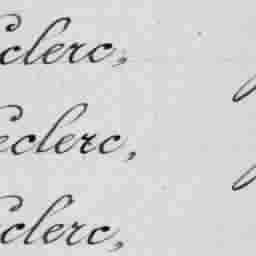 eclerc,
eclerc,
eclerc,